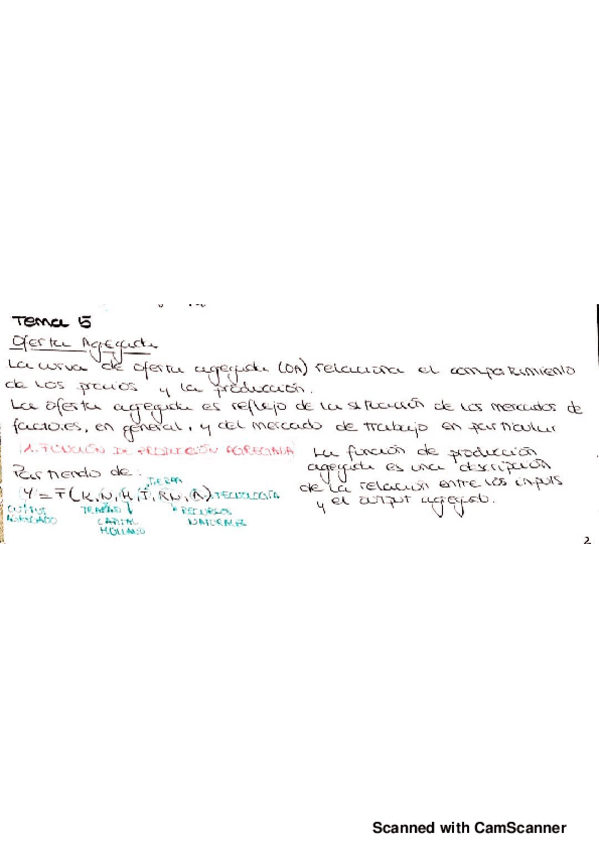 Tema 5
Oferta Agregada
La curva de oferta agregada (OA) relaciona el comportamiento
de los precios y la producción.
La oferta agregada es reflejo de la situación de los mercados de
factores, en general, y del mercado de trabajo en particular
1. FUNCIÓN DE PRODUCCIÓN AGREGADA
Partiendo de:
TIERRA
Y = F(K, N, H, T, RN, A) TECNOLOGÍA
OUTPUT TRABAJO RECURSOS
AGREGADO CAPITAL NATURALES
HUMANO
La función de producción
agregada es una descripción
de la relación entre los inputs
y el output agregado.
2
Scanned with CamScanner